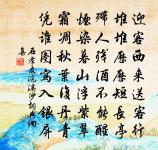 迎客西来送客行
堆堆歷堠短長亭
殢人殘酒不能醒
煙染春山浮紫翠
霜凋秋葉復丹青
憑誰圖寫入銀屏
石孝友浣溪沙詞